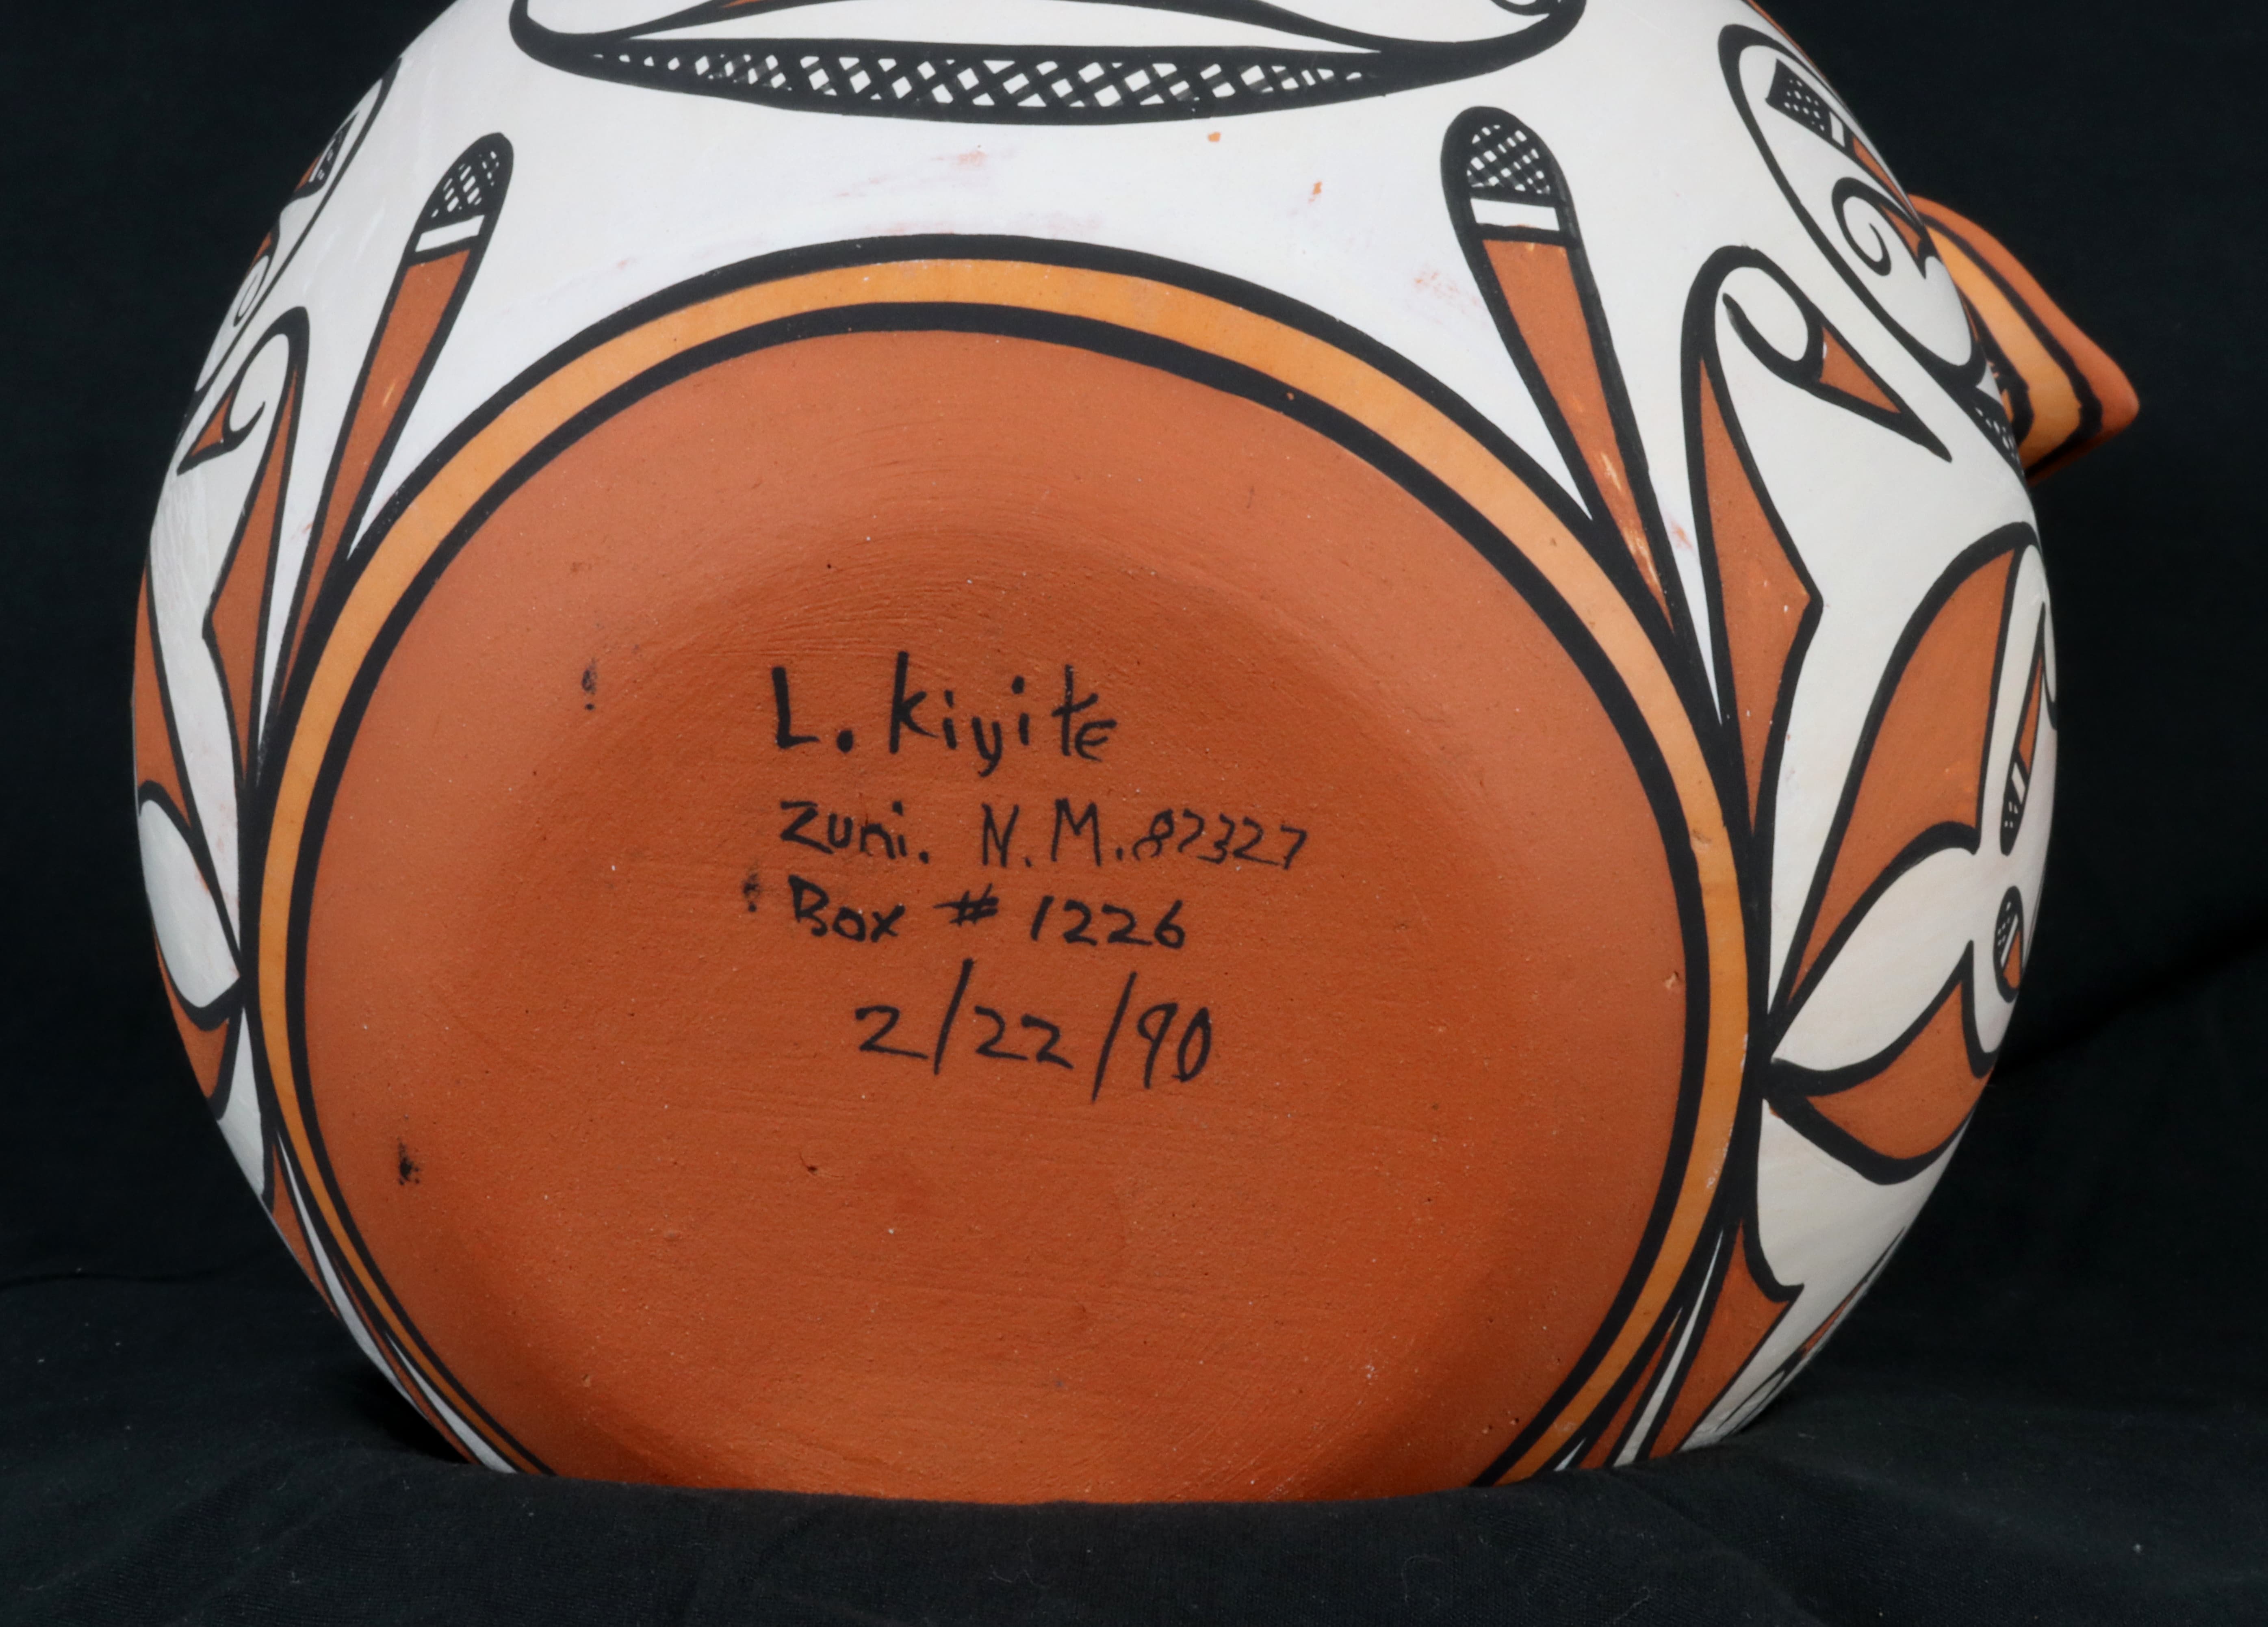 L. Kiyite
Zuni. N.M. 87327
Box # 1226
2/22/90